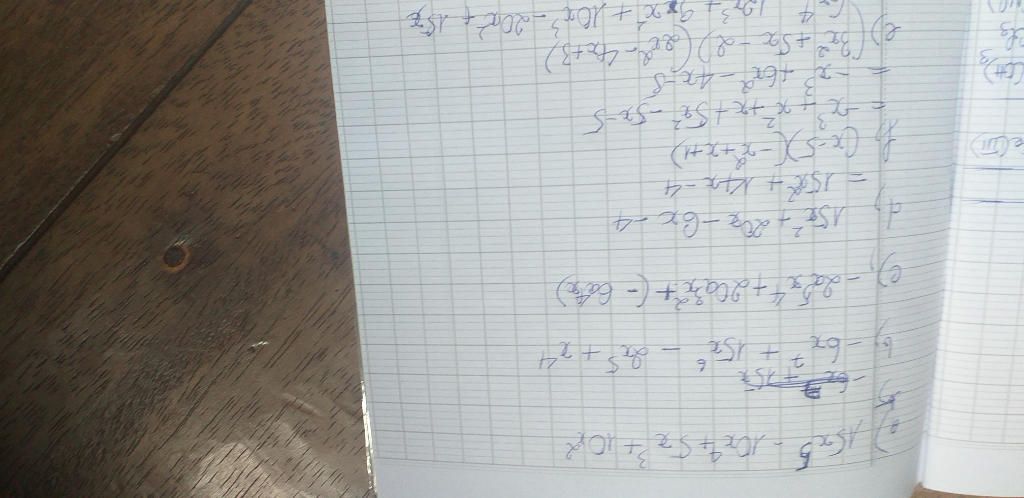 a) 15x⁵ - 10x⁴ + 5x³ + 10x²
b) -6x⁷ + 15x⁶ - 2x⁵ + x⁴
c) -2a⁵x⁴ + 20a³x² + (-6a⁴x)
d) 15x² + 20x - 6x - 4
= 15x² + 14x - 4
f) (x-5)(-x²+x+1)
= -x³ + x² + x + 5x² - 5x - 5
= -x³ + 6x² - 4x - 5
e) (3x² + 5x - 2)(2x² - 4x + 3)
6x⁴ - 12x³ + 9x² + 10x³ - 20x² + 15x